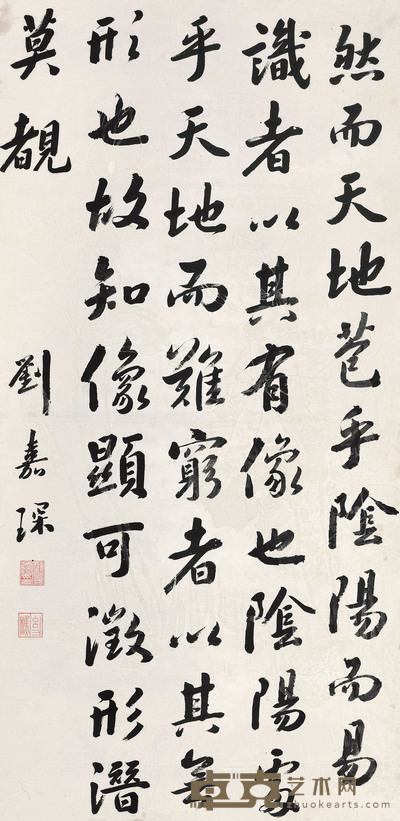 然而天地苞乎陰陽而易
識者以其有像也陰陽處
乎天地而難窮者以其無
形也故知像顯可徵形潛
莫覩
劉嘉琛
卓克艺术网
zhuokearts.com